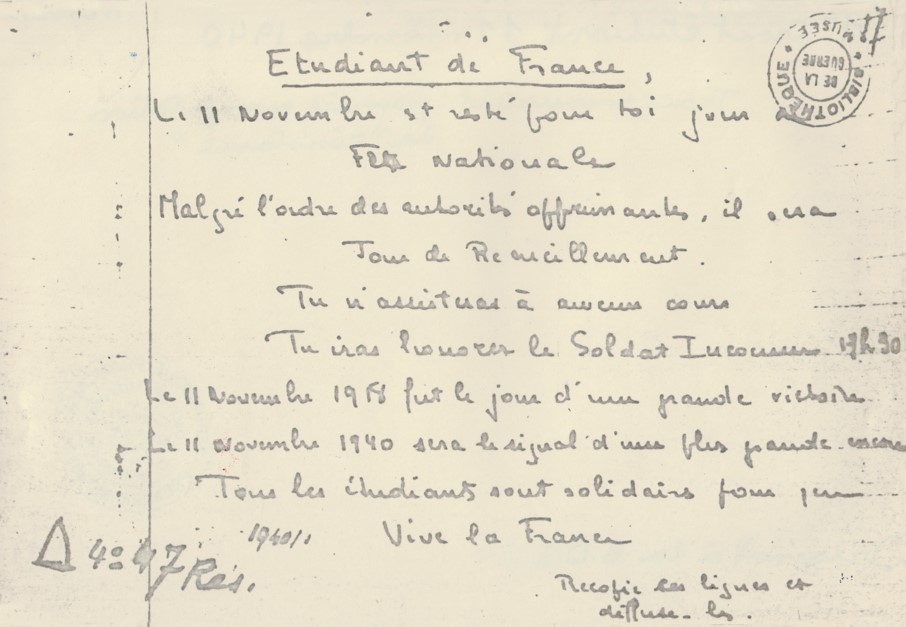 Etudiant de France,
Le 11 Novembre est resté pour toi jour de
Fête Nationale
Malgré l'ordre des autorités opprimantes, il sera
Jour de Recueillement.
Tu n'assisteras à aucun cours
Tu iras honorer le Soldat Inconnu 17h30
Le 11 Novembre 1918 fut le jour d'une grande victoire
Le 11 Novembre 1940 sera le signal d'une plus grande encore
Tous les étudiants sont solidaires pour que
Vive la France
Recopie ces lignes et
diffuse-les.
1940/1
Δ 4º 47 Rés.
BIBLIOTHÈQUE * MUSÉE *
DE LA
GUERRE